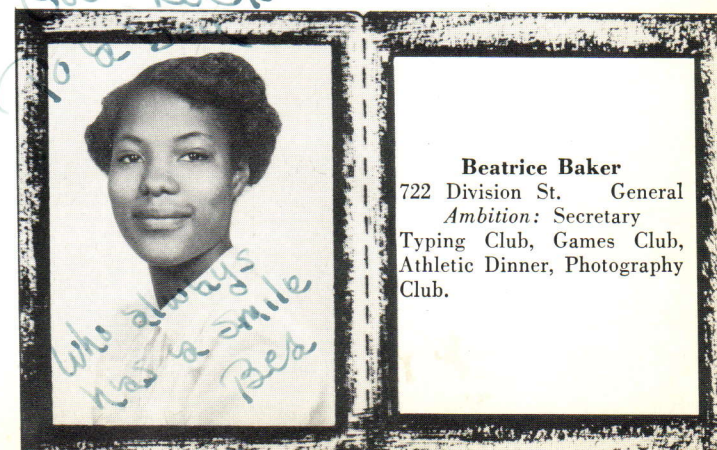 To a
who always
has a smile
Bea
Beatrice Baker
722 Division St. General
Ambition: Secretary
Typing Club, Games Club,
Athletic Dinner, Photography
Club.